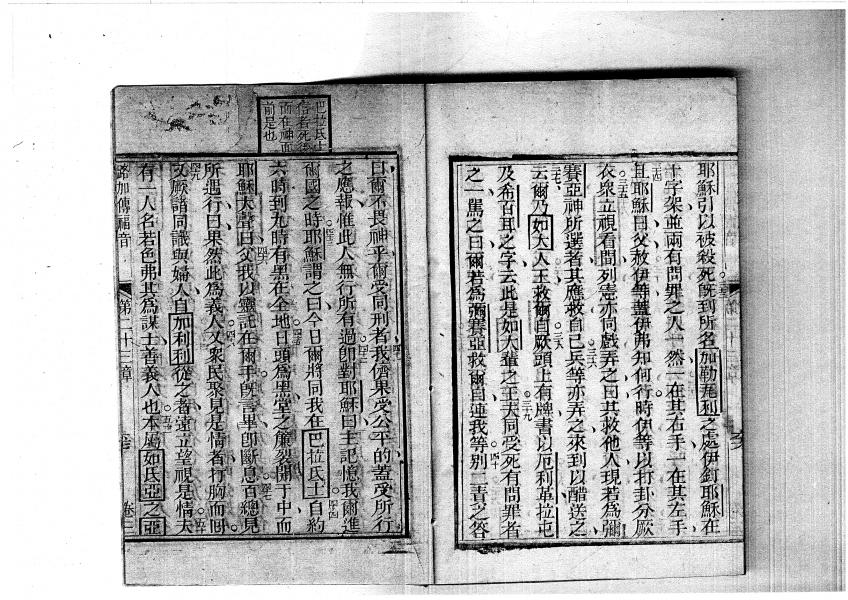 耶穌引以被殺死旣到所名加勒尾利之處伊釘耶穌在
十字架並兩有問罪之人一然一在其右手一在其左手
且耶穌曰父赦伊等蓋伊弗知何行時伊等以打卦分厥
衣衆立視看問列憲亦同戲弄之曰其救他人現若為彌
賽亞神所選者其應救自己兵等亦弄之來到以醋送之
云爾乃如大人王救爾自厥頭上有牌書以厄利革拉屯
及希百耳之字云此是如大輩之王夫同受死有問罪者
之一罵之曰爾若為彌賽亞救爾自連我等別一責之答
巴拉氏士
信者死後
而在神面
前是也
曰爾不畏神乎爾受同刑者我儕果受公平的蓋受所行
之應報惟此人無行所有過卽對耶穌曰主記憶我爾進
爾國之時耶穌謂之曰今日爾將同我在巴拉氏士自約
六時到九時有黑在全地日頭為黑堂之簾裂開于中而
耶穌大聲曰父我以靈託在爾手旣言畢卽斷息百總見
所遇行曰果然此為義人又衆民聚見是情者打胸而回
又厥諸同識與婦人自加利利從之者遠立望視是情夫
有一人名若色弗其為謀士善義人也本屬如氐亞之亞
路加傳福音 第二十三章 卷三